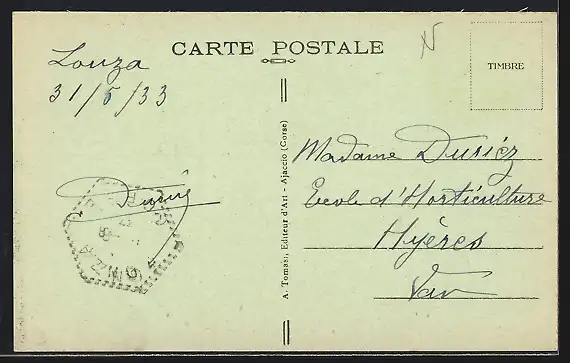 CARTE POSTALE
TIMBRE
Louza
31/5/33
A. Tomasi, Editeur d'Art - Ajaccio (Corse)
Madame Dusiéz
Ecole d'Horticulture
Hyères
Var